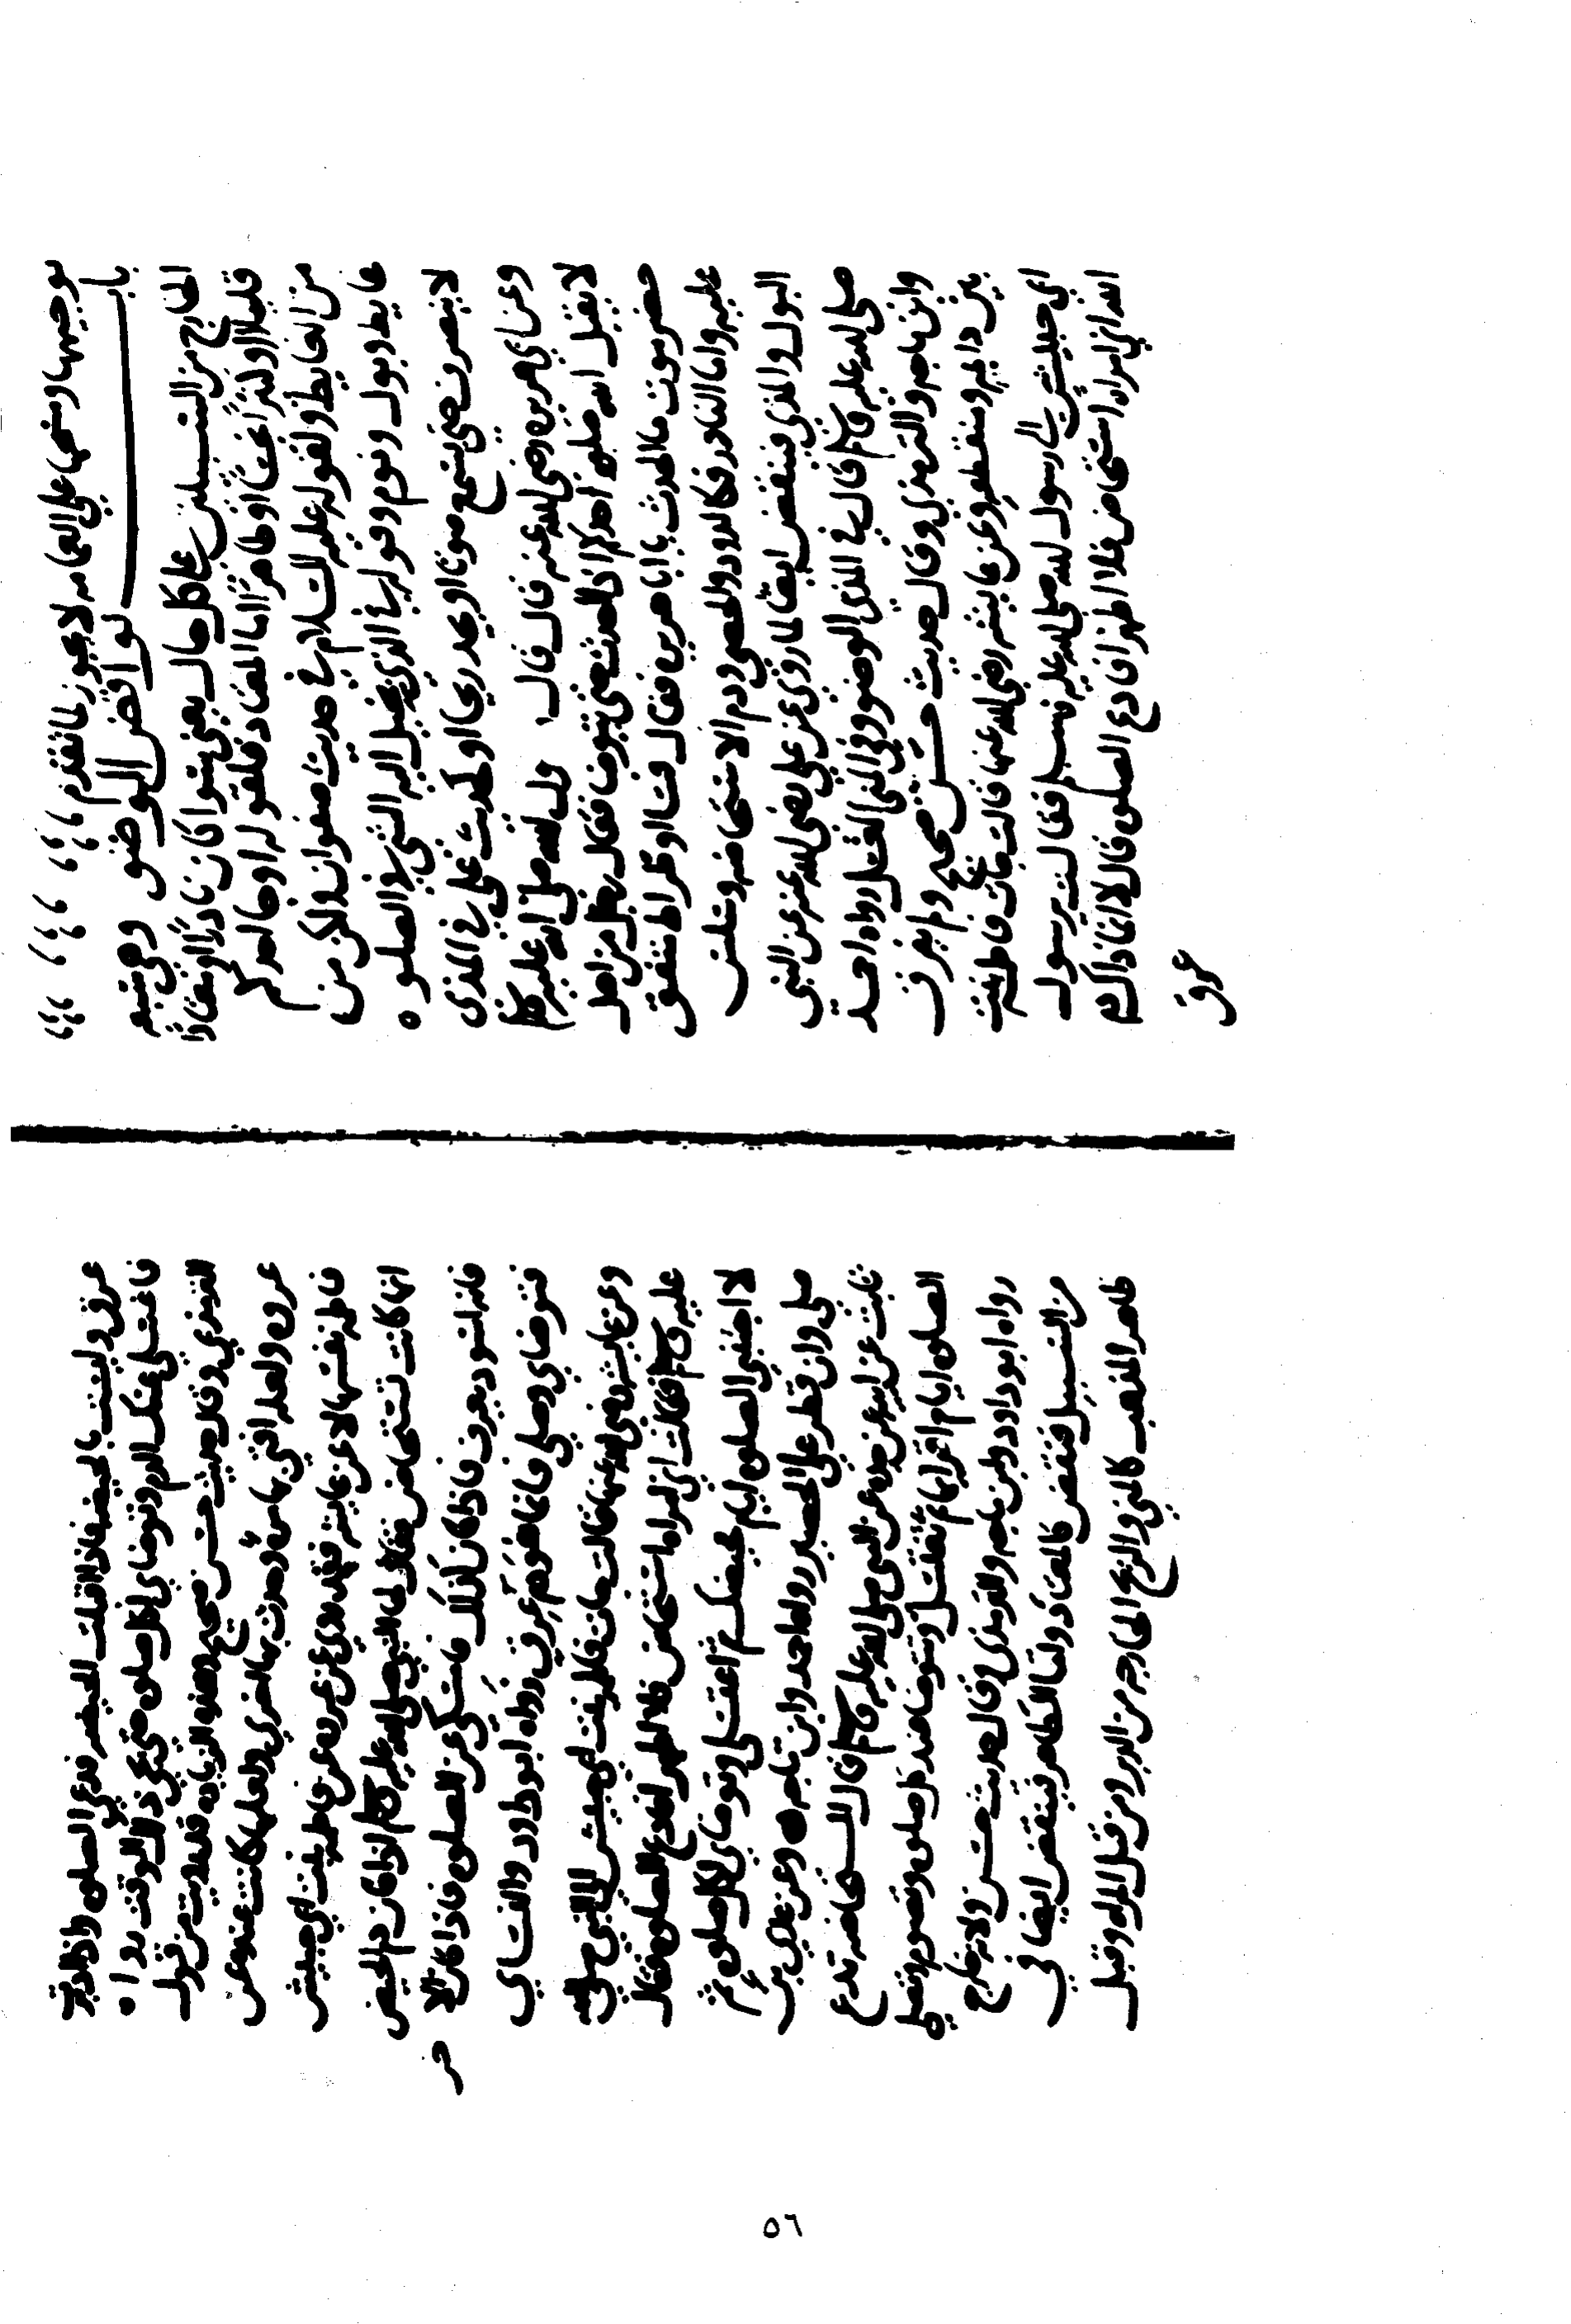 توجيهها ومنها على العامه لا يجوز لما تقدم
باب نواقض الوضوء وهي ثمانية
الخارج من السبيلين على كل حال يعني سواء كان نادرا او معتادا
قليلا او كثيرا نجسا او طاهرا اما المعتاد فلقوله او جاء احد منكم
من الغايط ولقوله عليه السلام في حديث صفوان ولكن من
غايط وبول ونوم وقوله في الذي يخيل اليه الشي في الصلوه
لا ينصرف حتى يسمع صوتا او يجد ريحا او لحديث علي في المذي
وعن ابي هريره رضي الله عنه قال قال رسول الله صلى الله عليه وسلم
لا يقبل الله صلوه احدكم اذا احدث حتى يتوضا فقال رجل من اهل
حضرموت ما الحدث يا ابا هريره فقال فسا او ضراط متفق
عليه واما النادر فكالدود والحصى ودم الاستحاضه وسلس
البول والمذي فينقض ايضا لما روي عن علي رضي الله عنه عن النبي
صلى الله عليه وسلم قال في المذي الوضوء وفي المني الغسل رواه احمد
وابن ماجه والترمذي وقال حديث حسن صحيح ولم يفرق
بين دايمه ومنقطعه وعن عايشه رضي الله عنها قالت جات فاطمه بنت
ابي حبيش الى رسول الله صلى الله عليه وسلم فقالت يرسول
الله اني امراه استحاض فلا اطهر افادع الصلوه قال لا انما ذلك
عرق
عرق وليست بالحيضه فاذا اقبلت الحيضه فدعي الصلوه واذا ادبرت
فاغسلي عنك الدم وتوضاي لكل صلوه حتى يجي ذلك الوقت رواه
الترمذي وقال حديث حسن صحيح
عروه
فاطمه نفسها لا عن عايشه فقد روي عن عروه عن فاطمه بنت ابي حبيش
انها كانت تستحاض فقال لها النبي صلى الله عليه وسلم اذا كان دم الحيض
فانه اسود يعرف فاذا كان كذلك فامسكي عن الصلوه فاذا كان الاخر
فتوضاي وصلي فانما هو دم عرق رواه ابو داود والنساي
وعن عايشه رضي الله عنها قالت جات فاطمه بنت ابي حبيش الى النبي صلى الله
عليه وسلم فقالت اني امراه استحاض فلا اطهر افادع الصلوه فقال
لا اجتنبي الصلوه ايام محيضك ثم اغتسلي وتوضاي لكل صلوه ثم
صلي وان قطر على الحصير رواه احمد وابن ماجه ٥ وعن عدي بن
ثابت عن ابيه عن جده عن النبي صلى الله عليه وسلم قال المستحاضه تدع
الصلوه ايام اقرايها ثم تغتسل وتتوضا عند كل صلوه وتصوم وتصلي
رواه ابو داود وابن ماجه والترمذي وقال حديث حسن ولانه خارج
من السبيل فنقض كالمعتاد واما الطاهر فينقض ايضا في
ظاهر المذهب كالمني والريح الخارجه من الدبر او من قبل المراه وقبل
٥٦